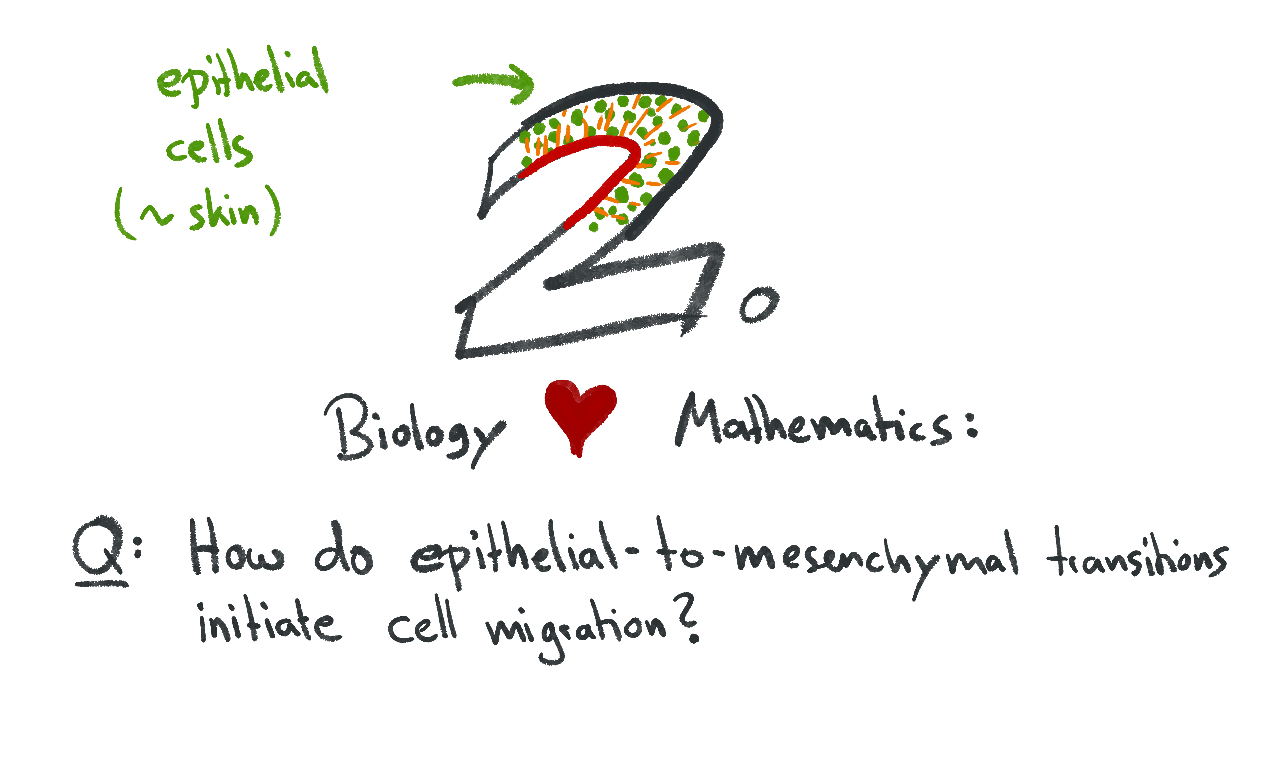 epithelial
cells
(~ skin)
2.
Biology ♥ Mathematics:
Q: How do epithelial-to-mesenchymal transitions
initiate cell migration?